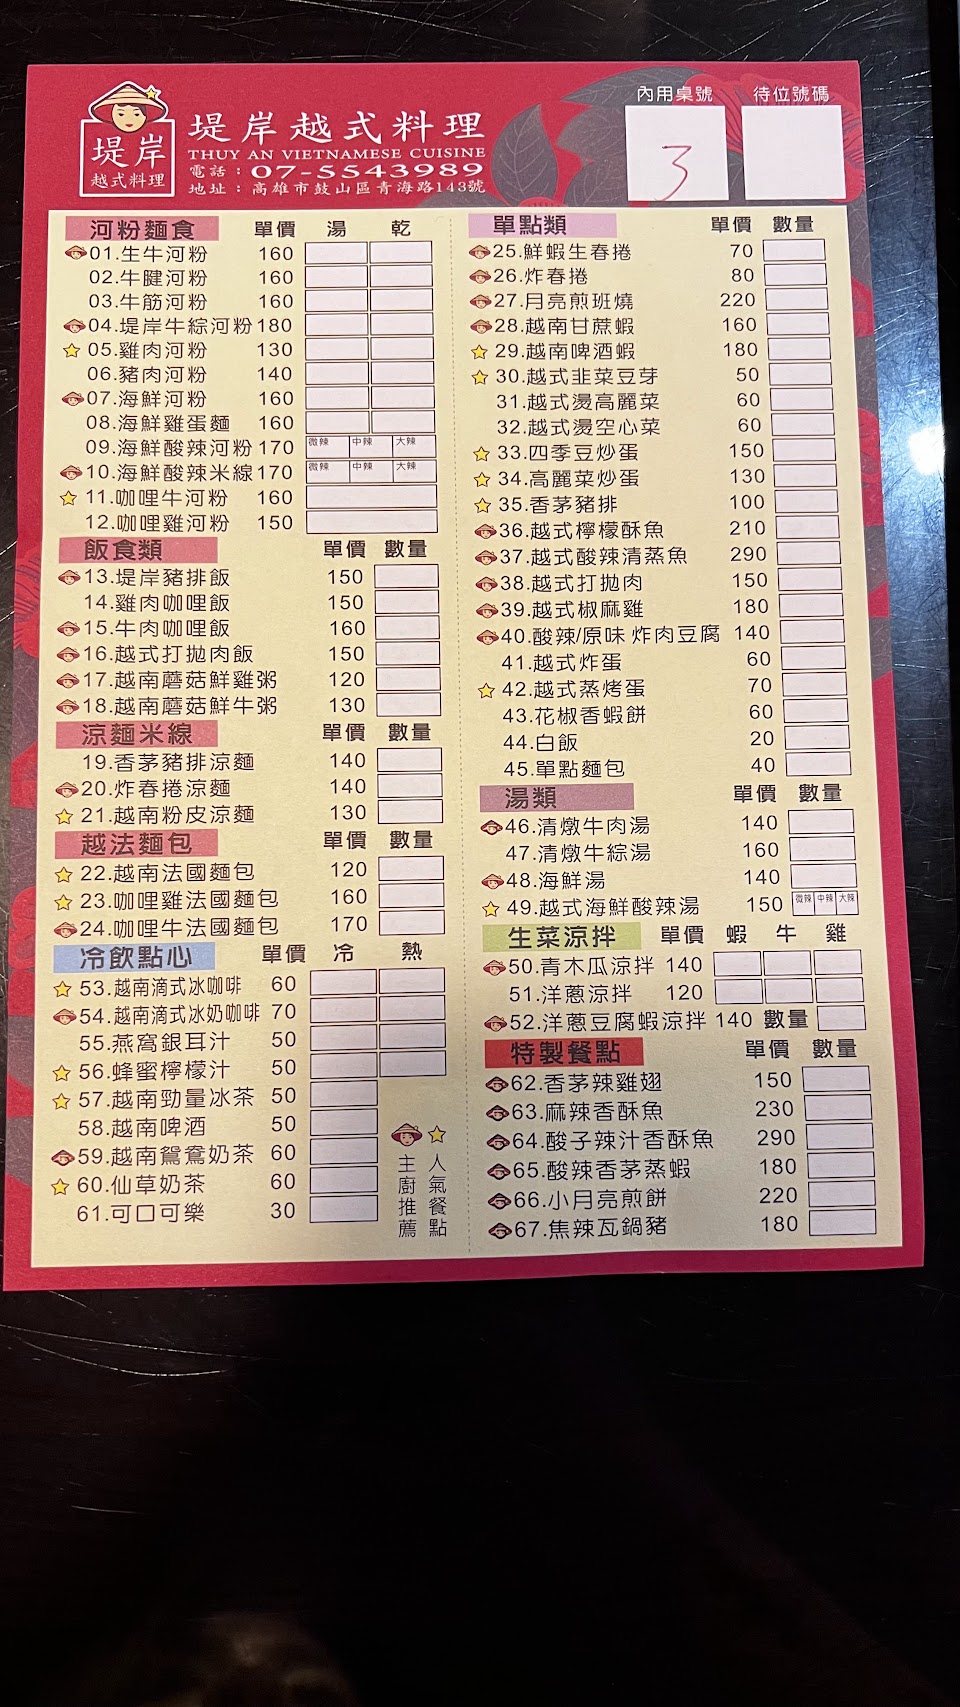 堤岸
越式料理
堤岸越式料理
THUY AN VIETNAMESE CUISINE
電話：07-5543989
地址：高雄市鼓山區青海路143號
內用桌號 待位號碼
3
河粉麵食 單價 湯 乾
01.生牛河粉 160
02.牛腱河粉 160
03.牛筋河粉 160
04.堤岸牛綜河粉 180
05.雞肉河粉 130
06.豬肉河粉 140
07.海鮮河粉 160
08.海鮮雞蛋麵 160
09.海鮮酸辣河粉 170 微辣 中辣 大辣
10.海鮮酸辣米線 170 微辣 中辣 大辣
11.咖哩牛河粉 160
12.咖哩雞河粉 150
飯食類 單價 數量
13.堤岸豬排飯 150
14.雞肉咖哩飯 150
15.牛肉咖哩飯 160
16.越式打拋肉飯 150
17.越南蘑菇鮮雞粥 120
18.越南蘑菇鮮牛粥 130
涼麵米線 單價 數量
19.香茅豬排涼麵 140
20.炸春捲涼麵 140
21.越南粉皮涼麵 130
越法麵包 單價 數量
22.越南法國麵包 120
23.咖哩雞法國麵包 160
24.咖哩牛法國麵包 170
冷飲點心 單價 冷 熱
53.越南滴式冰咖啡 60
54.越南滴式冰奶咖啡 70
55.燕窩銀耳汁 50
56.蜂蜜檸檬汁 50
57.越南勁量冰茶 50
58.越南啤酒 50
59.越南鴛鴦奶茶 60
60.仙草奶茶 60
61.可口可樂 30
主廚推薦
人氣餐點
單點類 單價 數量
25.鮮蝦生春捲 70
26.炸春捲 80
27.月亮煎班燒 220
28.越南甘蔗蝦 160
29.越南啤酒蝦 180
30.越式韭菜豆芽 50
31.越式燙高麗菜 60
32.越式燙空心菜 60
33.四季豆炒蛋 150
34.高麗菜炒蛋 130
35.香茅豬排 100
36.越式檸檬酥魚 210
37.越式酸辣清蒸魚 290
38.越式打拋肉 150
39.越式椒麻雞 180
40.酸辣/原味 炸肉豆腐 140
41.越式炸蛋 60
42.越式蒸烤蛋 70
43.花椒香蝦餅 60
44.白飯 20
45.單點麵包 40
湯類 單價 數量
46.清燉牛肉湯 140
47.清燉牛綜湯 160
48.海鮮湯 140
49.越式海鮮酸辣湯 150 微辣 中辣 大辣
生菜涼拌 單價 蝦 牛 雞
50.青木瓜涼拌 140
51.洋蔥涼拌 120
52.洋蔥豆腐蝦涼拌 140 數量
特製餐點 單價 數量
62.香茅辣雞翅 150
63.麻辣香酥魚 230
64.酸子辣汁香酥魚 290
65.酸辣香茅蒸蝦 180
66.小月亮煎餅 220
67.焦辣瓦鍋豬 180